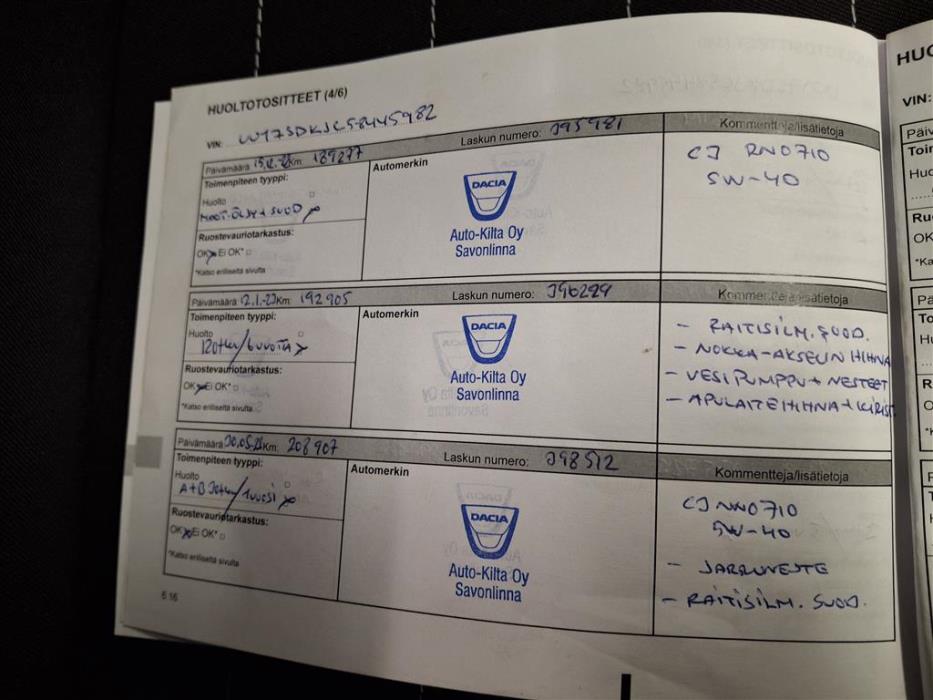 HUOLTOTOSITTEET (4/6)
VIN:
Päivämäärä Km: 189277 Laskun numero: 395981 Kommentteja/lisätietoja
Toimenpiteen tyyppi: Automerkin
Huolto
Ruostevauriotarkastus:
OK Ei OK*
*Katso erilliseltä sivulta
DACIA
Auto-Kilta Oy
Savonlinna
CJ RN0710
5W-40
Päivämäärä 12.1.-23 Km: 192905 Laskun numero: 396299 Kommentteja/lisätietoja
Toimenpiteen tyyppi: Automerkin
Huolto
120tkm/6vuotta
Ruostevauriotarkastus:
OK Ei OK*
*Katso erilliseltä sivulta
DACIA
Auto-Kilta Oy
Savonlinna
- RAITISILM. SUOD.
- NOKKA-AKSELIN HIHNA
- VESIPUMPPU + NESTEET
- APULAITEHIHNA + KIRIST
Päivämäärä Km: 208907 Laskun numero: 398512 Kommentteja/lisätietoja
Toimenpiteen tyyppi: Automerkin
Huolto
A+B 30tkm/1vuosi
Ruostevauriotarkastus:
OK Ei OK*
*Katso erilliseltä sivulta
DACIA
Auto-Kilta Oy
Savonlinna
CJ RN0710
5W-40
- JARRUNESTE
- RAITISILM. SUOD.
6.16
HUOL
VIN: